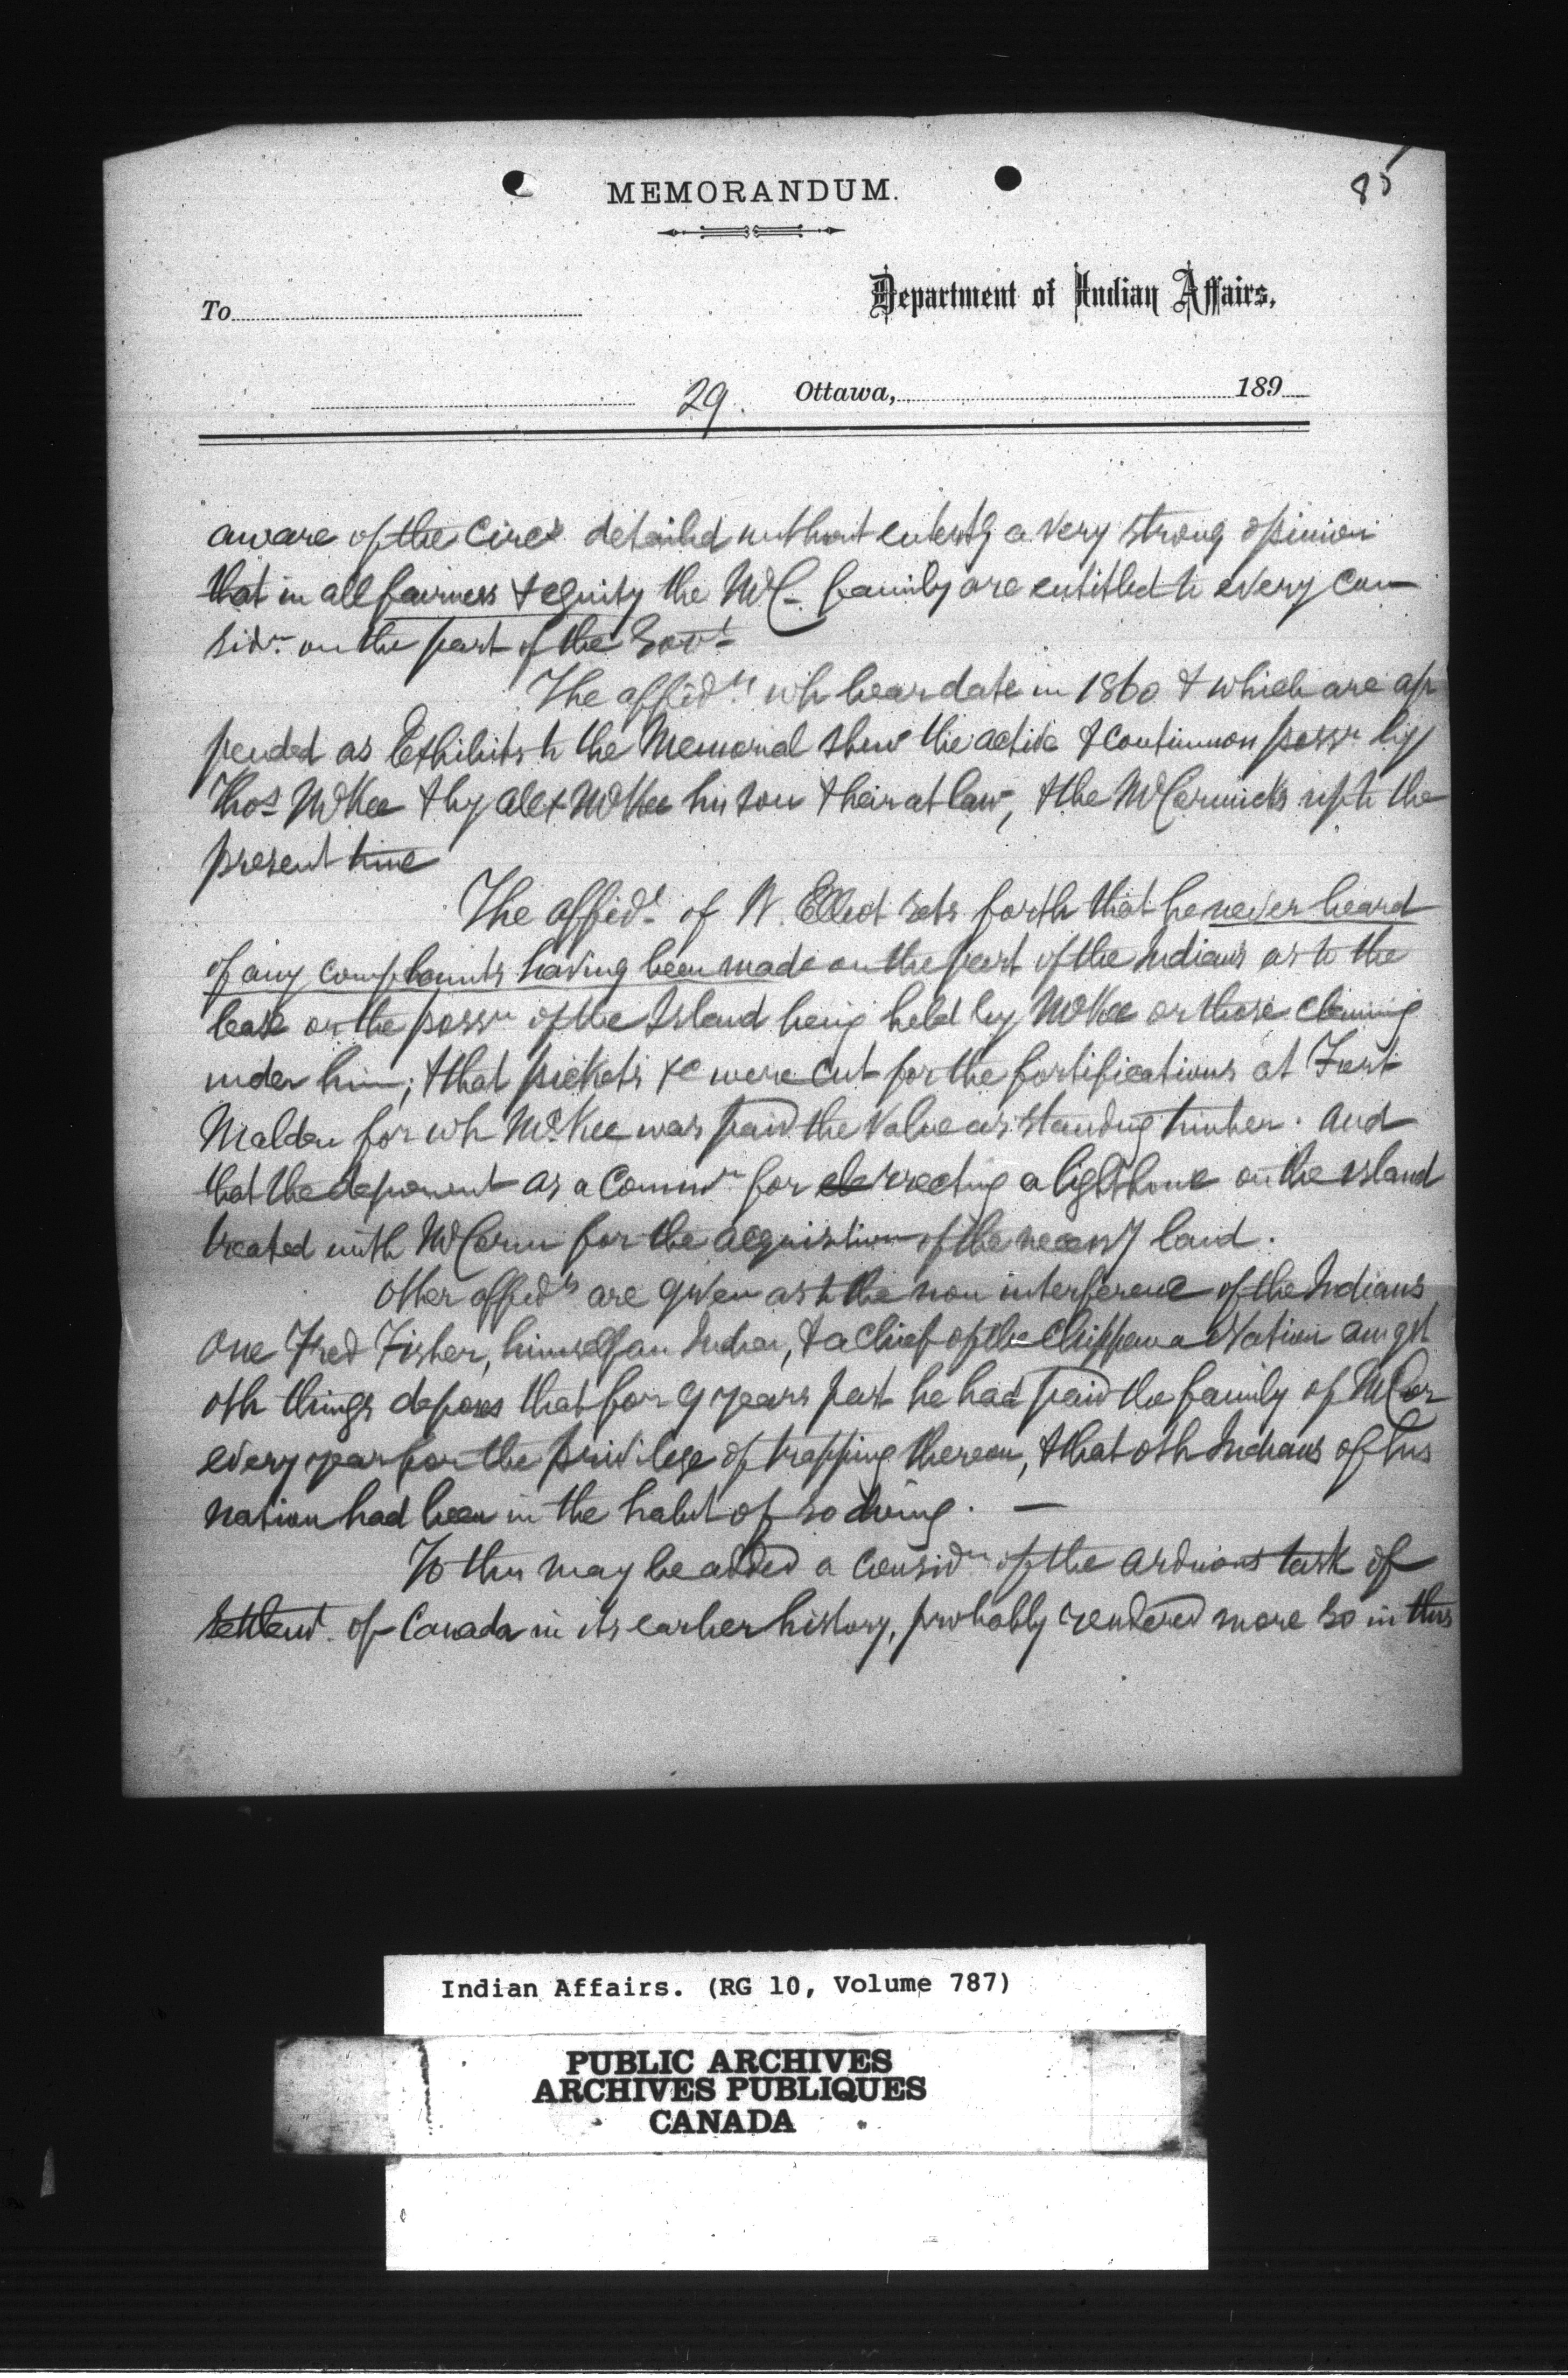 85
MEMORANDUM.
To
Department of Indian Affairs,
29. Ottawa, 189
aware of the Circs detailed without entertg a very strong opinion
that in all fairness & equity the McC- family are entitled to every con-
sidn on the part of the Govt
The affidts wh bear date in 1860 & which are ap
pended as Exhibits to the Memorial shew the active & continuous possn by
Thos McKee & by Alex McKee his son & heir at law, & the McCormicks up to the
present time
The affidt of W. Elliot sets forth that he never heard
of any complaints having been made on the part of the Indians as to the
lease or the possn of the Island being held by McKee or those claiming
under him; & that pickets &c were cut for the fortifications at Fort
Malden for wh McKee was paid the value as standing timber. And
that the deponent as a Commr for erecting a lighthouse on the island
treated with McCorm for the acquisition of the necessy land.
Other affidts are given as to the non interference of the Indians
One Fred Fisher, himself an Indian, & a Chief of the Chippewa Nation amgst
oth things deposes that for 9 years past he had paid the family of McCor
every year for the privilege of trapping thereon, & that oth Indians of his
nation had been in the habit of so doing. —
To this may be added a considn of the arduous task of
Settlemt. of Canada in its earlier history, probably rendered more so in this
Indian Affairs. (RG 10, Volume 787)
PUBLIC ARCHIVES
ARCHIVES PUBLIQUES
CANADA